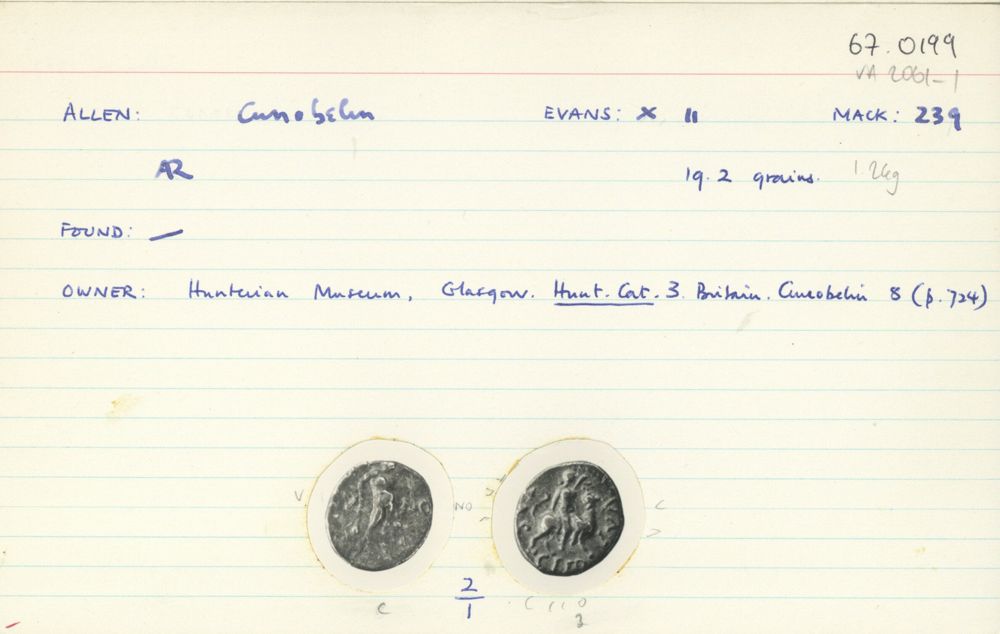 67.0199
VA 2061-1
ALLEN: Cunobelin EVANS: X 11 MACK: 239
AR 19.2 grains. 1.24g
FOUND: —
OWNER: Hunterian Museum, Glasgow. Hunt. Cat. 3. Britain. Cunobelin 8 (p.724)
V NO C
C 2/1 C